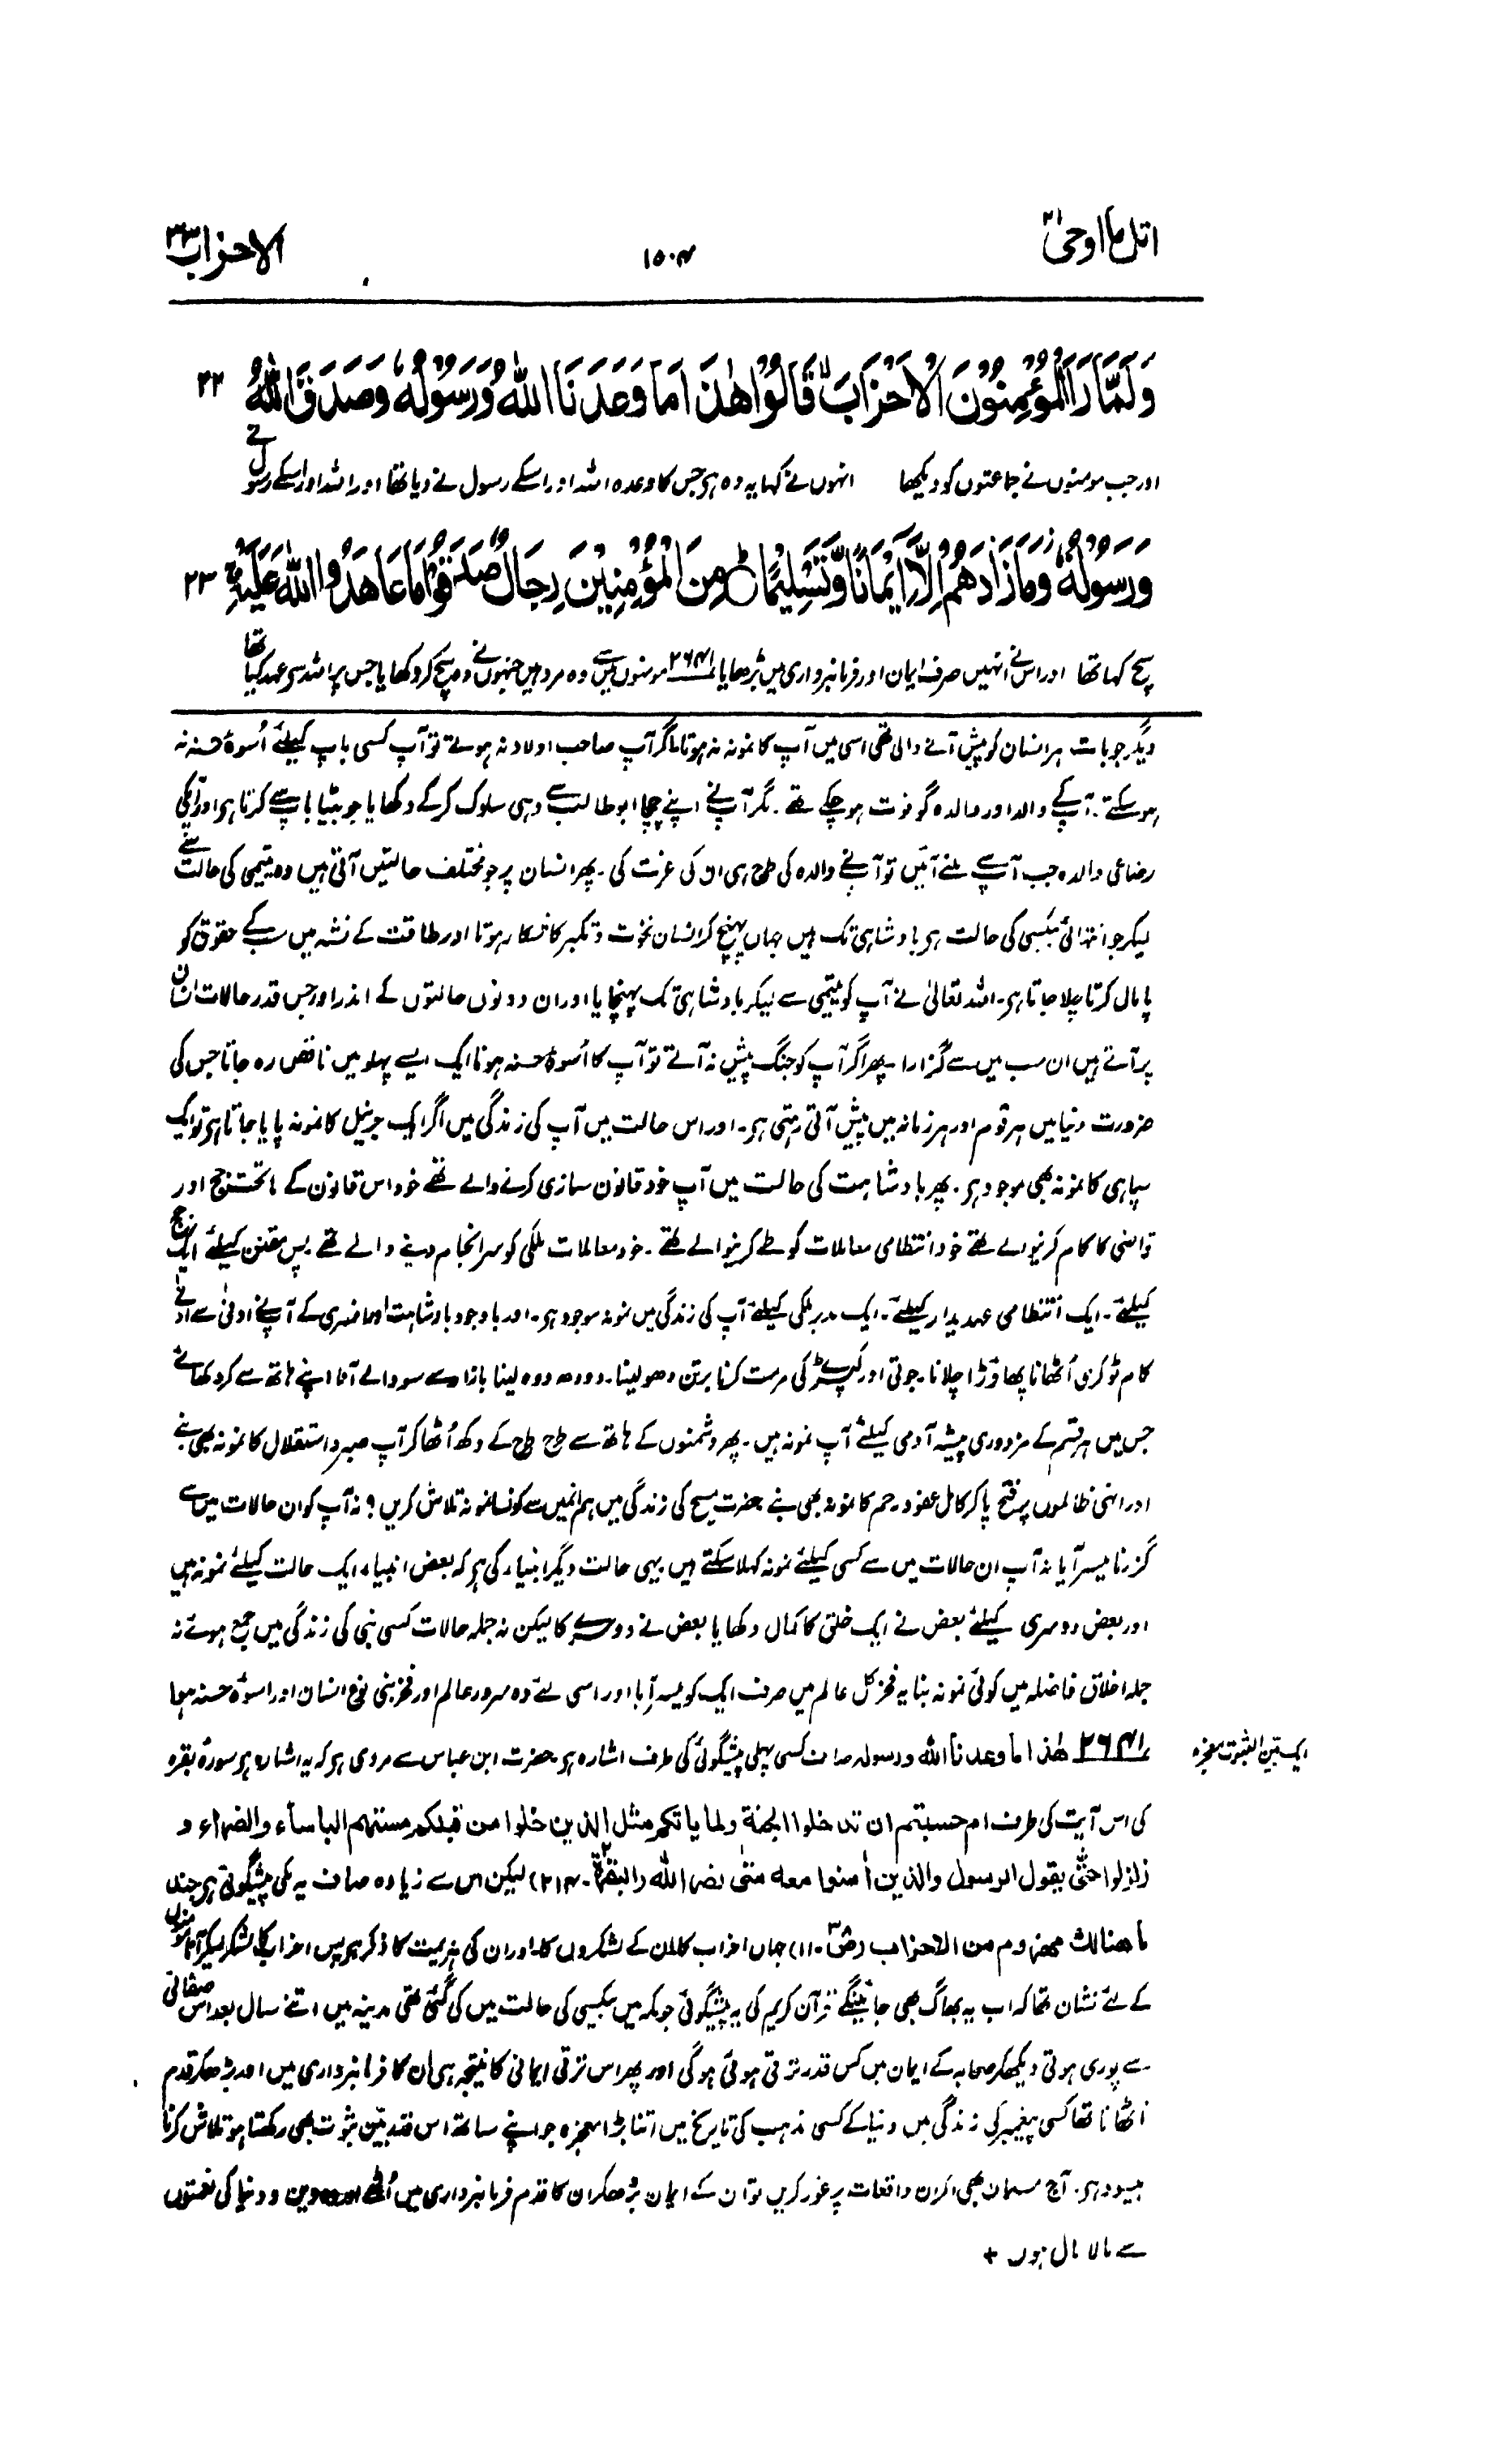 اتل ما اوحی ۲۱
۱۵۰۴
الاحزاب ۳۳
وَلَمَّا رَاَ الْمُؤْمِنُوْنَ الْاَحْزَابَ ۙ قَالُوْا هٰذَا مَا وَعَدَنَا اللّٰهُ وَرَسُوْلُهٗ وَصَدَقَ اللّٰهُ ۲۲
اور جب مومنوں نے جماعتوں کو دیکھا انہوں نے کہا یہ وہ ہے جس کا وعدہ اللہ اور اسکے رسول نے دیا تھا اور اللہ اور اسکے رسول نے
وَرَسُوْلُهٗ ۡ وَمَا زَادَهُمْ اِلَّاۤ اِيْمَانًا وَّتَسْلِيْمًا ۞ مِنَ الْمُؤْمِنِيْنَ رِجَالٌ صَدَقُوْا مَا عَاهَدُوا اللّٰهَ عَلَيْهِ ۲۳
سچ کہا تھا اور اس نے انہیں صرف ایمان اور فرمانبرداری میں بڑھایا ۲۶۴۱ مومنوں میں سے وہ مرد ہیں جنہوں نے وہ سچ کر دکھایا جس پر اللہ سے عہد کیا تھا
دیگر جو بات ہر انسان کو پیش آنے والی تھی اسی میں آپ کا نمونہ نہ ہوتا۔ اگر آپ صاحب اولاد نہ ہوتے تو آپ کسی باپ کیلئے اُسوۂ حسنہ نہ
ہو سکتے۔ آپکے والد اور والدہ گو فوت ہو چکے تھے۔ مگر آپ نے اپنے چچا ابو طالب سے وہی سلوک کرکے دکھایا جو بیٹیا باپ سے کرتا ہے اور آپکی
رضاعی والدہ جب آپ سے ملنے آئیں تو آپ نے والدہ کی طرح ہی ان کی عزت کی۔ پھر انسان پر جو مختلف حالتیں آتی ہیں وہ یتیمی کی حالت سے
لیکر جو انتہائی بیکسی کی حالت ہے بادشاہی تک ہیں جہاں پہنچ کر انسان نخوت و تکبر کا شکار ہوتا اور طاقت کے نشہ میں سب کے حقوق کو
پامال کرتا چلا جاتا ہے۔ اللہ تعالیٰ نے آپ کو یتیمی سے لیکر بادشاہی تک پہنچایا اور ان دونوں حالتوں کے اندر اور جس قدر حالات انسان
پر آتے ہیں ان سب میں سے گزارا۔ پھر اگر آپ کو جنگ پیش نہ آتے تو آپ کا اُسوۂ حسنہ ہونا ایک ایسے پہلو میں ناقص رہ جاتا جس کی
ضرورت دنیا میں ہر قوم اور ہر زمانہ میں پیش آتی رہتی ہے۔ اور اس حالت میں آپ کی زندگی میں اگر ایک جرنیل کا نمونہ پایا جاتا ہے تو ایک
سپاہی کا نمونہ بھی موجود ہے۔ پھر بادشاہت کی حالت میں آپ خود قانون سازی کرنے والے تھے خود اس قانون کے ماتحت جج اور
قاضی کا کام کرنیوالے تھے خود انتظامی معاملات کو طے کرنیوالے تھے۔ خود معاملات ملکی کو سرانجام دینے والے تھے پس مقنن کیلئے ایک جج
کیلئے۔ ایک انتظامی عہدیدار کیلئے۔ ایک مدبر ملکی کیلئے آپ کی زندگی میں نمونہ موجود ہے۔ اور باوجود بادشاہت اور افسری کے آپ نے ادنیٰ سے ادنیٰ
کام ٹوکری اُٹھانا پھاوڑا چلانا۔ جوتی اور کپڑے کی مرمت کرنا برتن دھو لینا۔ دودھ دوہ لینا بازار سے سودا لے آنا اپنے ہاتھ سے کر دکھائے
جس میں ہر قسم کے مزدوری پیشہ آدمی کیلئے آپ نمونہ ہیں۔ پھر دشمنوں کے ہاتھ سے طرح طرح کے دکھ اُٹھا کر آپ صبر و استقلال کا نمونہ بھی بنے
اور انہی ظالموں پر فتح پاکر کامل عفو و رحم کا نمونہ بھی بنے حضرت مسیح کی زندگی میں ہم انمیں سے کونسا نمونہ تلاش کریں؟ نہ آپ کو ان حالات میں سے
گزرنا میسر آیا نہ آپ ان حالات میں سے کسی کیلئے نمونہ کہلا سکتے ہیں یہی حالت دیگر انبیاء کی ہے کہ بعض انبیاء ایک حالت کیلئے نمونہ ہیں
اور بعض دوسری کیلئے بعض نے ایک خلق کا کمال دکھایا بعض نے دوسرے کا لیکن نہ جملہ حالات کسی نبی کی زندگی میں جمع ہوئے نہ
جملہ اخلاق فاضلہ میں کوئی نمونہ بنا یہ فخر کل عالم میں صرف ایک کو میسر آیا اور اسی لئے وہ سرور عالم اور فخر بنی نوع انسان اور اسوۂ حسنہ ہوا
ایک بیّن الثبوت معجزہ
۲۶۴۱ هٰذا ما وعدنا الله ورسوله صاف کسی پہلی پیشگوئی کی طرف اشارہ ہے حضرت ابن عباس سے مروی ہے کہ یہ اشارہ ہے سورۂ بقرہ
کی اس آیت کی طرف ام حسبتم ان تدخلوا الجنة ولما یاتکم مثل الذین خلوا من قبلکم مستهم الباسآء والضراء و
زلزلوا حتّٰی یقول الرسول والذین اٰمنوا معه متٰی نصر الله (البقرة ۲۔۲۱۴) لیکن اس سے زیادہ صاف یہ مکی پیشگوئی ہے جند
ما هنالك مهزوم من الاحزاب (صٓ ۔۱۱) جہاں احزاب کا ان کے لشکروں کا اور ان کی ہزیمت کا ذکر ہے پس احزاب کا لشکر لیکر آنا مومنوں
کے لئے نشان تھا کہ اب یہ بھاگ بھی جائینگے قرآن کریم کی یہ پیشگوئی جو مکہ میں بیکسی کی حالت میں کی گئی تھی مدینہ میں اتنے سال بعد اس صفائی
سے پوری ہوتی دیکھکر صحابہ کے ایمان میں کس قدر ترقی ہوئی ہوگی اور پھر اس ترقی ایمانی کا نتیجہ ہی ان کا فرمانبرداری میں اور بڑھکر قدم
اٹھانا تھا کسی پیغمبر کی زندگی میں دنیا کے کسی مذہب کی تاریخ میں اتنا بڑا معجزہ جو اپنے ساتھ اس قدر بیّن ثبوت بھی رکھتا ہو تلاش کرنا
بیسود ہے۔ آج مسلمان بھی اگر ان واقعات پر غور کریں تو ان کے ایمان بڑھکر ان کا قدم فرمانبرداری میں اُٹھے اور وہ دین و دنیا کی نعمتوں
سے مالا مال ہوں +